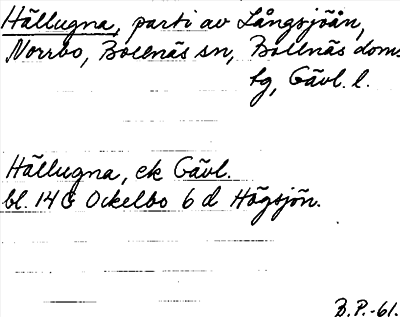 Hällugna, parti av Långsjöån,
Norrbo, Bollnäs sn, Bollnäs doms
tg, Gävl. l.
Hällugna, ek Gävl.
bl. 14 G Ockelbo 6 d Högsjön.
B.P.-61.